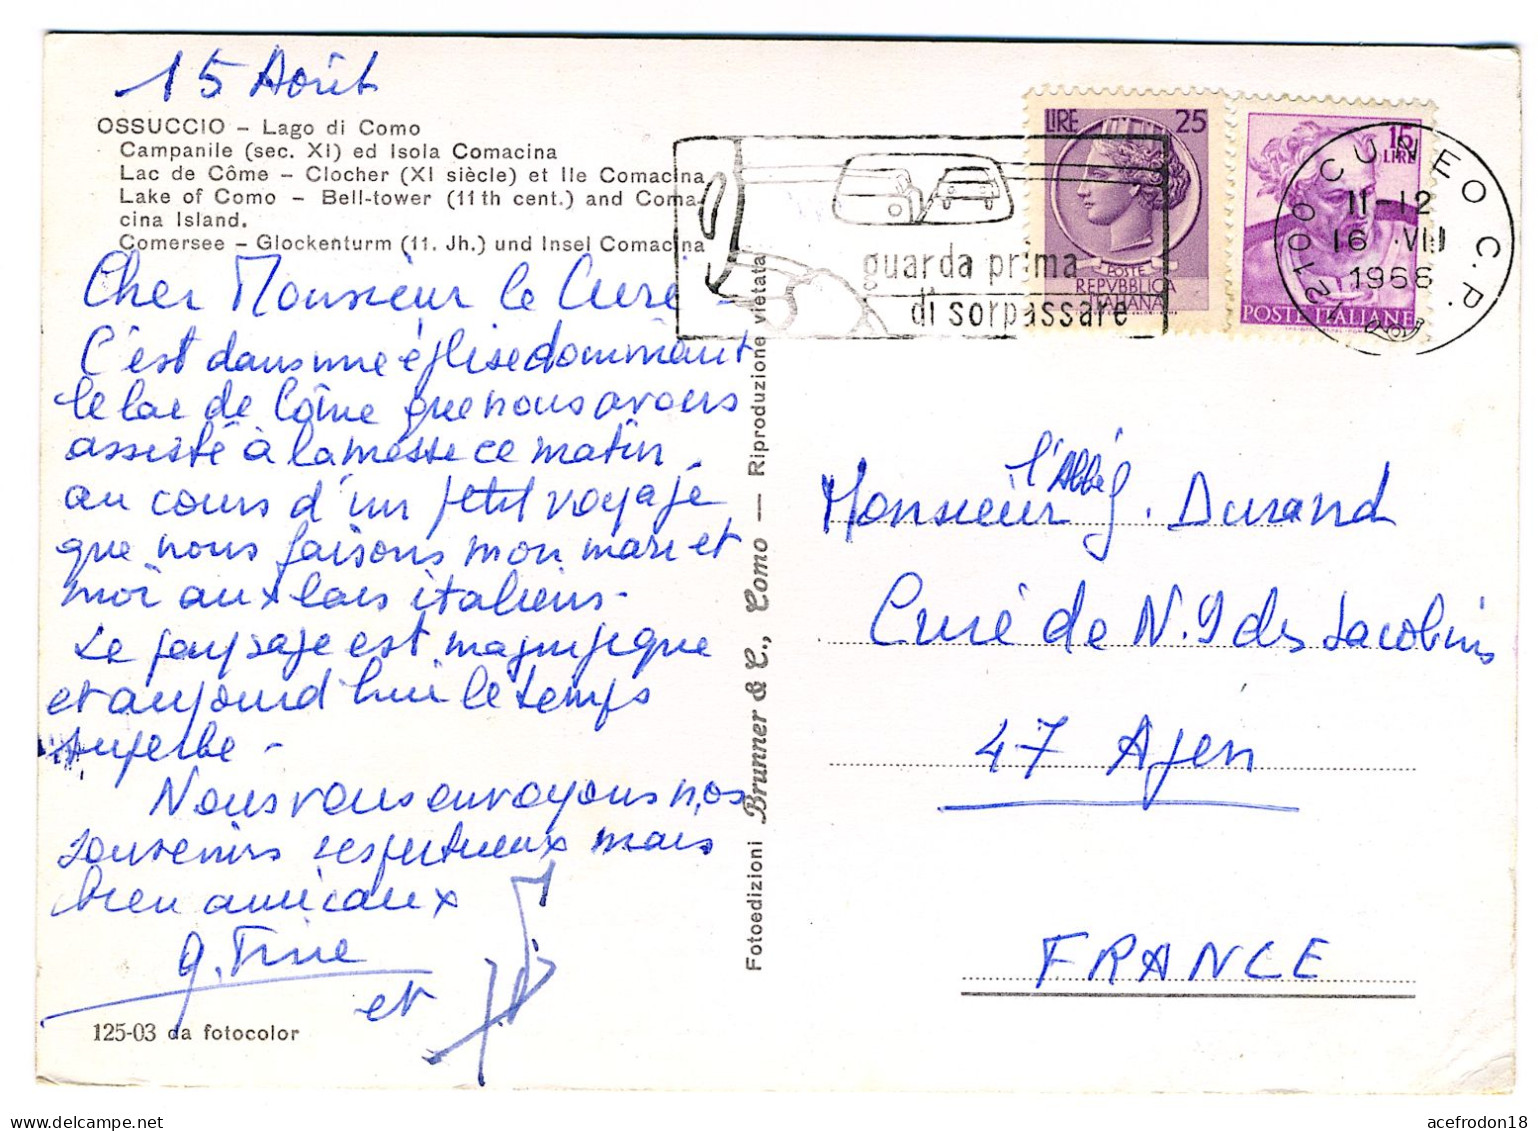 15 Août
OSSUCCIO – Lago di Como
Campanile (sec. XI) ed Isola Comacina
Lac de Côme – Clocher (XI siècle) et Ile Comacina
Lake of Como – Bell-tower (11th cent.) and Coma-
cina Island.
Comersee – Glockenturm (11. Jh.) und Insel Comacina
Cher Monsieur le Curé –
C'est dans une église dominant
le lac de Côme que nous avons
assisté à la messe ce matin –
au cours d'un petit voyage
que nous faisons mon mari et
moi aux lacs italiens –
Le paysage est magnifique
et aujourd'hui le temps
superbe –
Nous vous envoyons nos
souvenirs respectueux mais
bien amicaux
et
125-03 da fotocolor
Fotoedizioni Brunner & C., Como — Riproduzione vietata
LIRE 25
POSTE
REPVBBLICA
ITALIANA
15
LIRE
POSTE ITALIANE
guarda prima
di sorpassare
12100 CUNEO C.P.
11-12
16 VIII
1966
l'Abbé
Monsieur J. Durand
Curé de N.D des Jacobins
47 Agen
FRANCE
acefrodon18